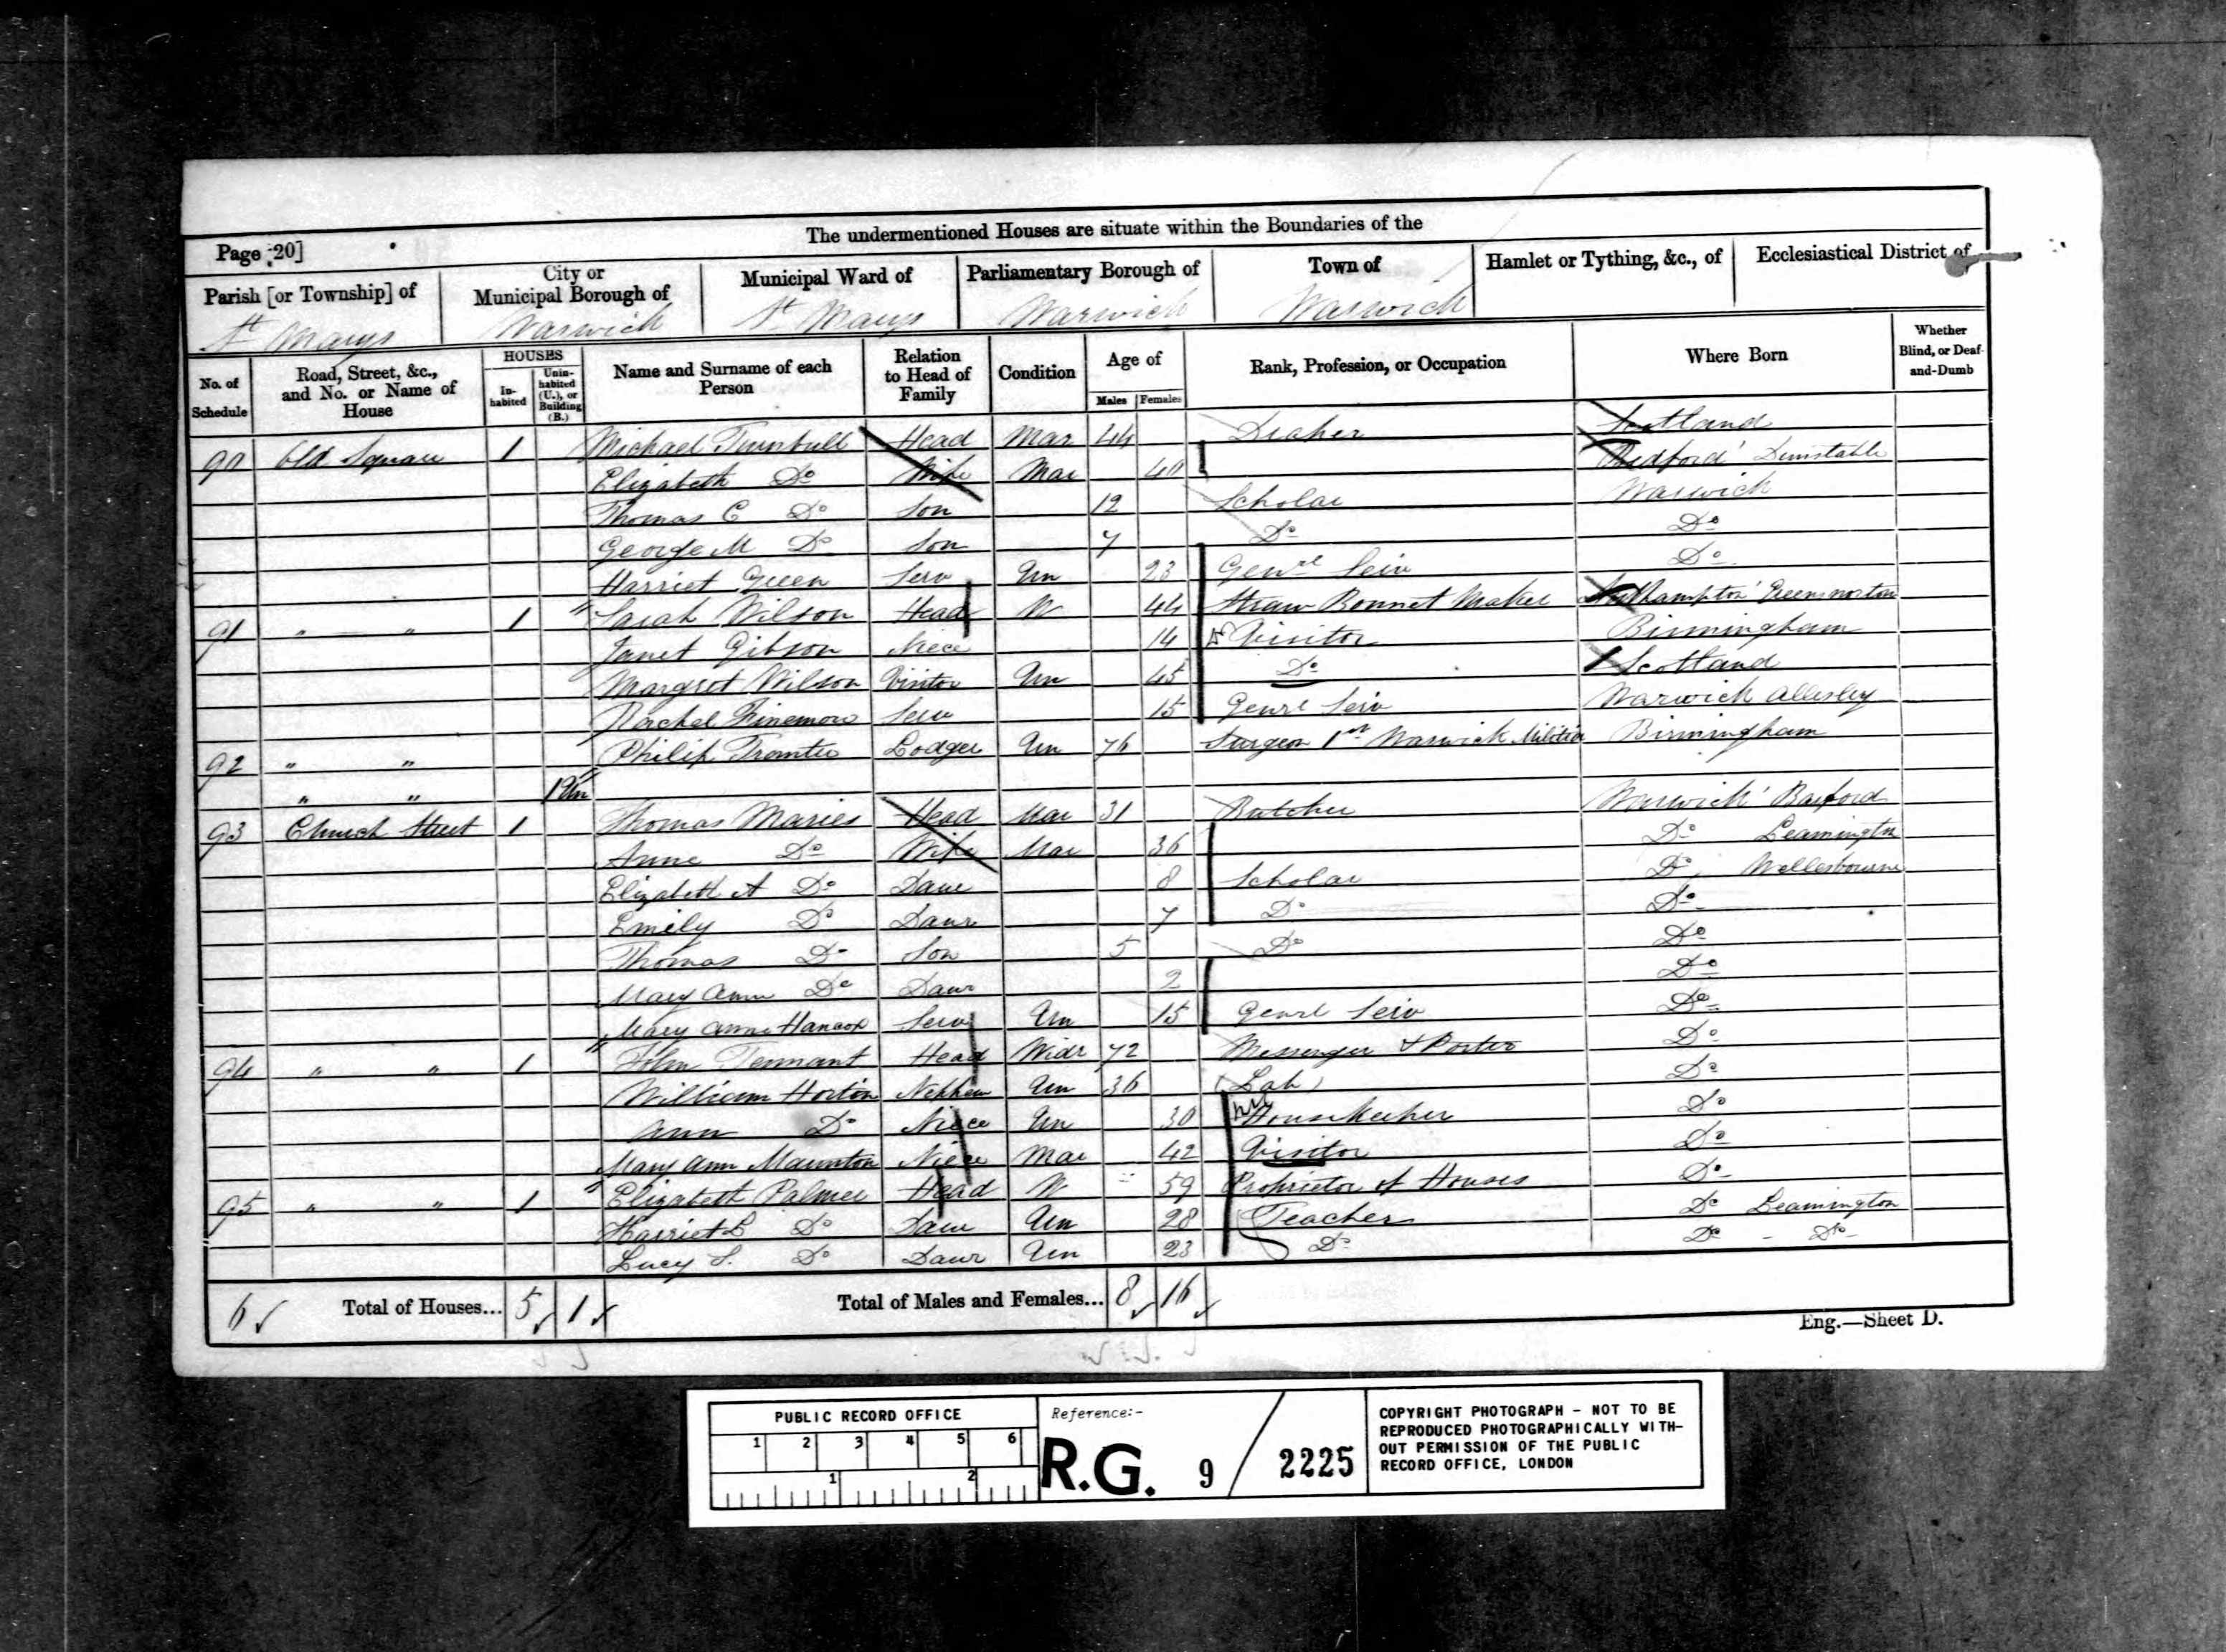 The undermentioned Houses are situate within the Boundaries of the
Page 20]
Parish [or Township] of City or Municipal Borough of Municipal Ward of Parliamentary Borough of Town of Hamlet or Tything, &c., of Ecclesiastical District of
St Marys Warwick St Marys Warwick Warwick
No. of Schedule Road, Street, &c., and No. or Name of House HOUSES In-habited Unin-habited (U.), or Building (B.) Name and Surname of each Person Relation to Head of Family Condition Age of Males Females Rank, Profession, or Occupation Where Born Whether Blind, or Deaf-and-Dumb
90 Old Square 1 Michael Turnbull Head Mar 44 Draper Scotland
Elizabeth Do Wife Mar 40 Bedford Dunstable
Thomas C Do Son 12 Scholar Warwick
George M Do Son 7 Do Do
Harriet Green Serv Un 23 Genrl Serv Do
91 " " 1 Sarah Wilson Head W 44 Straw Bonnet Maker Greensnorton
Janet Gibson Niece 14 Visitor Birmingham
Margret Wilson Visitor Un 45 Do Scotland
Rachel Finemore Serv 15 Genrl Serv Warwick Allesley
92 " " Philip Lodger Un 76 Surgeon 1st Warwick Militia Birmingham
" " 1 Un
93 Church Street 1 Thomas Maries Head Mar 31 Butcher Warwick Barford
Anne Do Wife Mar 36 Do Leamington
Elizabeth A Do Daur 8 Scholar Do Wellesbourne
Emily Do Daur 7 Do Do
Thomas Do Son 5 Do Do
Mary Ann Do Daur 2 Do
Mary Anne Hancox Serv Un 15 Genrl Serv Do
94 " " 1 John Tennant Head Widr 72 Messenger & Porter Do
William Horton Nephew Un 36 (Lab) Do
Ann Do Niece Un 30 Housekeeper Do
Mary Ann Maunton Niece Mar 42 Visitor Do
95 " " 1 Elizabeth Palmer Head W 59 Proprietor of Houses Do
Harriet Do Daur Un 28 Teacher Do Leamington
Lucy S. Do Daur Un 23 Do Do - Do
6 Total of Houses... 5 1 Total of Males and Females... 8 16
Eng.—Sheet D.
PUBLIC RECORD OFFICE
1 2 3 4 5 6
1 2
Reference:-
R.G. 9 / 2225
COPYRIGHT PHOTOGRAPH - NOT TO BE
REPRODUCED PHOTOGRAPHICALLY WITH-
OUT PERMISSION OF THE PUBLIC
RECORD OFFICE, LONDON